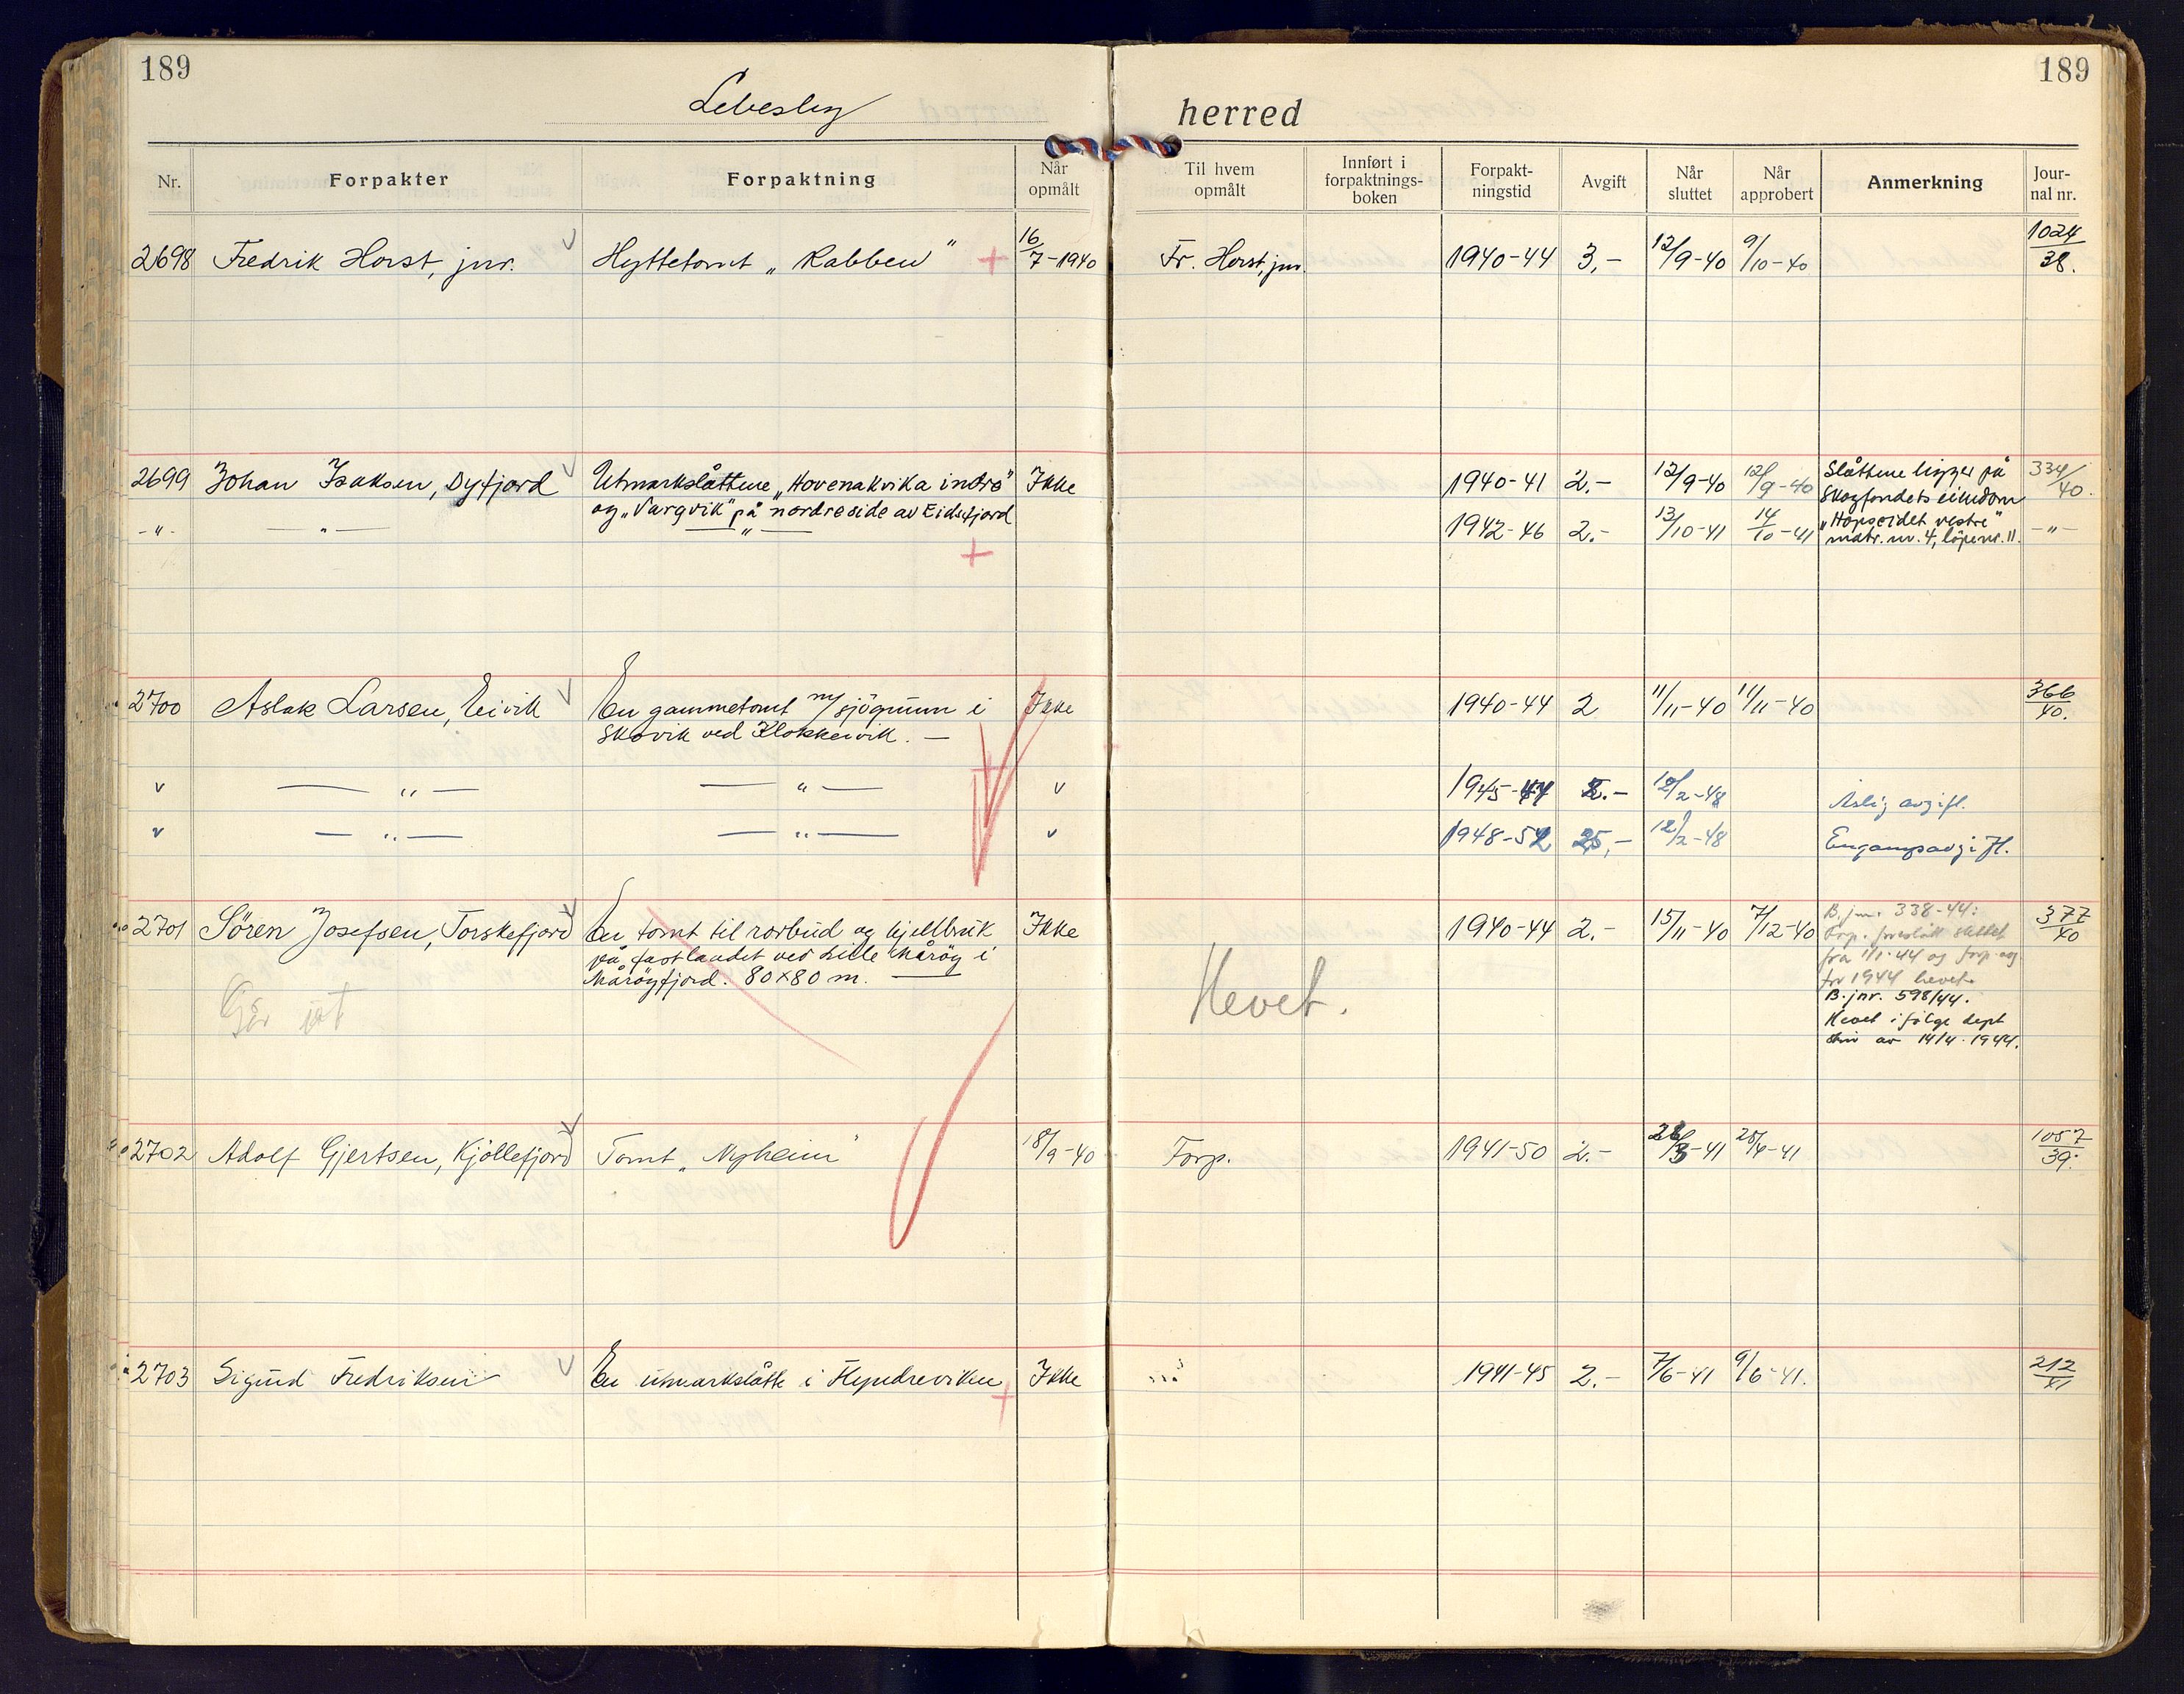 189
189
Lebesby herred
Nr. Forpakter Forpaktning Når opmålt Til hvem opmålt Innført i forpaktnings-boken Forpakt-ningstid Avgift Når sluttet Når approbert Anmerkning Jour-nal nr.
2698 Fredrik Horst, jnr. Hyttetomt „Rabben" 16/7-1940 Fr. Horst, jnr. 1940-44 3,- 12/9-40 9/10-40 1024/38.
2699 Johan Isaksen, Dyfjord Utmarkslåttene „Hovenakvika indre" Ikke 1940-41 2.- 12/9-40 12/9-40 Slåttene ligger på 334/40.
og „Vargvik" på nordre side av Eidsfjord Skogfondets eiendom
-"- -"- -"- 1942-46 2.- 13/10-41 14/10-41 „Hopseidet vestre" -"-
matr. nr. 4, löpenr. 11.
2700 Aslak Larsen, Eivik En gammetomt m/sjögrunn i Ikke 1940-44 2 11/11-40 11/11-40 366/40.
Skovik ved Klokkervik. -
v -"- -"- v 1945-47 2.- 12/2-48 Årlig avgift.
v -"- -"- v 1948-52 25,- 12/2-48 Engangsavgift.
2701 Sören Josefsen, Torskefjord En tomt til rorbud og hjellbruk Ikke 1940-44 2.- 15/11-40 7/12-40 B. jnr. 338-44: 377/40
på fastlandet ved Lille Måröy i Forp. foreslått slettet
Måröyfjord. 80x80 m. fra 1/1-44 og forp. avg.
for 1944 hevet.
Hevet.
B. jnr. 598/44.
Hevet ifölge dept
skriv av 14/4-1944.
2702 Adolf Gjertsen, Kjöllefjord Tomt „Nyheim" 18/9-40 Forp. 1941-50 2.- 26/3-41 25/4-41 1057/39.
2703 Sigurd Fredriksen En utmarkslåtte i Hyndreviken Ikke 1941-45 2.- 7/6-41 9/6-41. 212/41